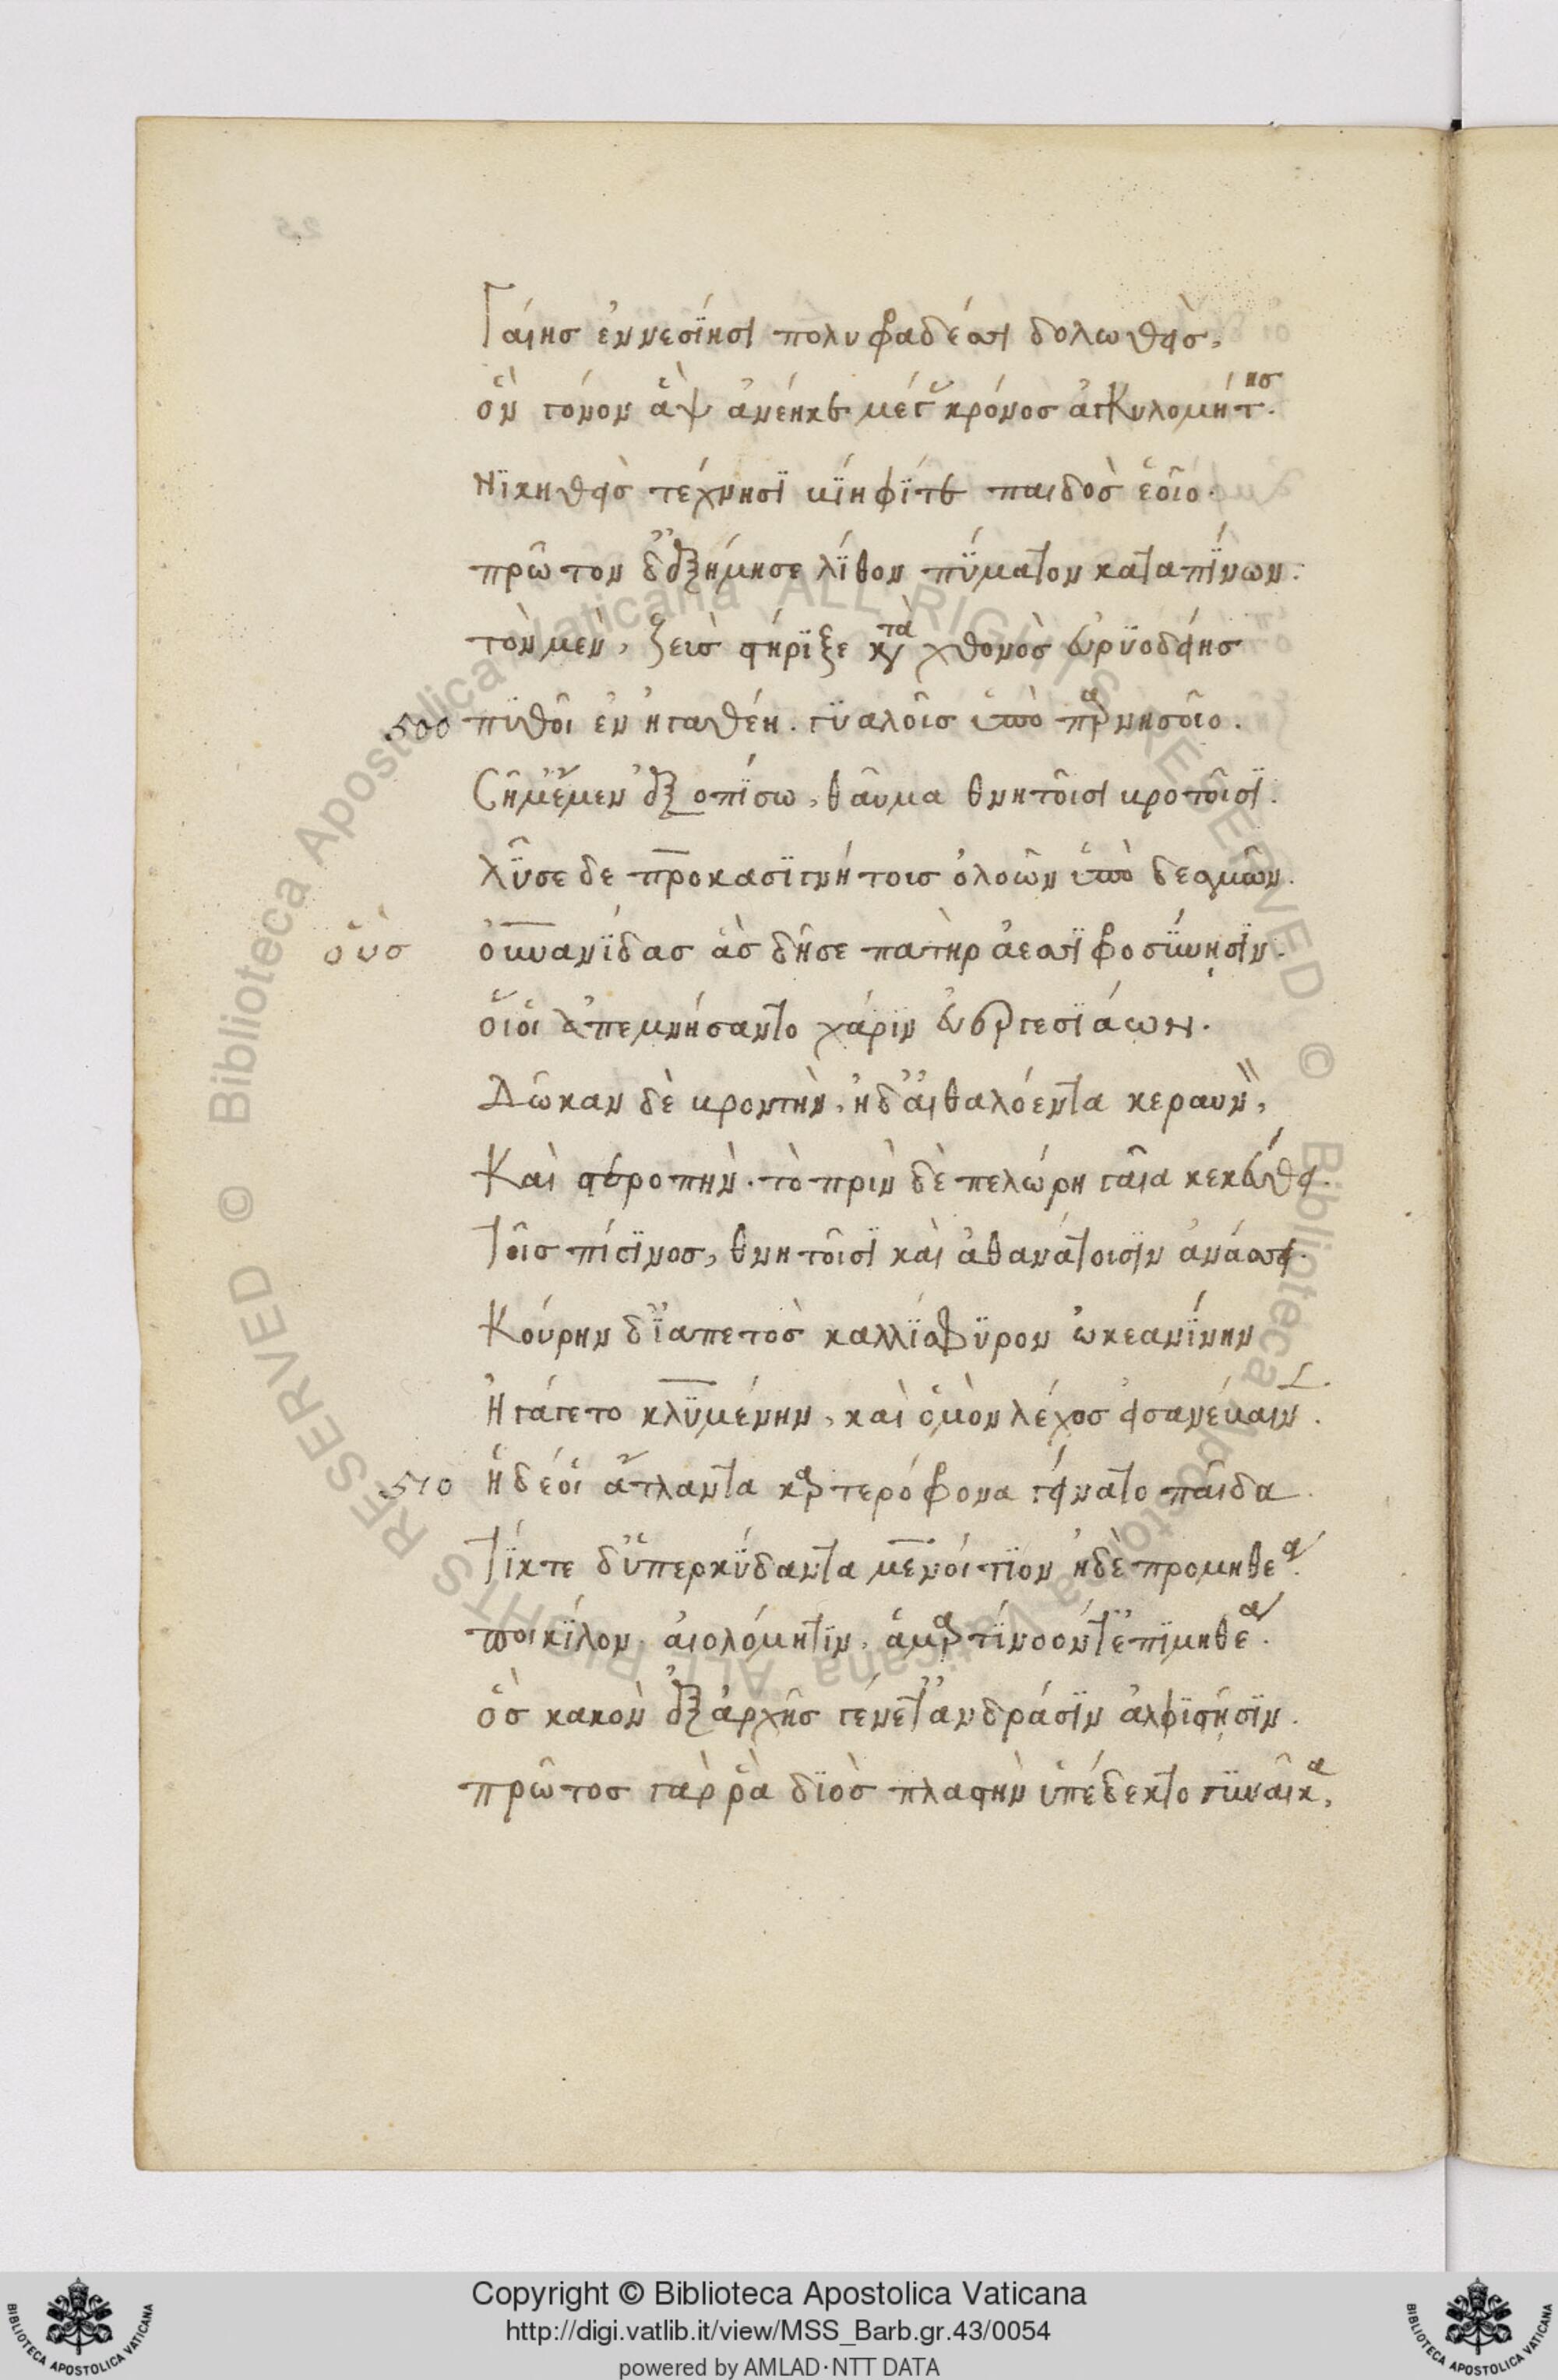 25
Γάιης ἐννεσίησι πολυφραδέσσι δολωθεὶς,
ὃν γόνον ἂψ ἀνέηκε μέγας κρόνος ἀγκυλομήτης.
Νικηθεὶς τέχνησι βίηφίτε παιδὸς ἑοῖο.
πρῶτον δ' ἐξήμησε λίθον πύματον καταπίνων.
τὸν μὲν, ζεὺς στήριξε κατὰ χθονὸς εὐρυοδείης
500 πυθοῖ ἐν ἠγαθέη. γυάλοις ὑπὸ παρνησοῖο.
Σῆμ' ἔμεν ἐξοπίσω, θαῦμα θνητοῖσι βροτοῖσι.
λῦσε δε προκασιγνήτοις ὀλοῶν ὑπὸ δεσμῶν.
οὓς ὀυρανίδας ἃς δῆσε πατὴρ ἀεσιφροσύνησιν.
ὅι οἱ ἀπεμνήσαντο χάριν ἐυεργεσιάων.
Δῶκαν δὲ βροντὴν, ἠδ' ἀιθαλόεντα κεραυνὸν,
Καὶ στεροπὴν. τὸ πρὶν δὲ πελώρη γαῖα κεκεύθει.
Τοῖς πίσυνος, θνητοῖσι καὶ ἀθανάτοισιν ἀνάσσει.
Κούρην δ' ἰαπετὸς καλλίσφυρον ὠκεανίνην
Ἠγάγετο κλυμένην, καὶ ὁμὸν λέχος εἰσανέβαιν.
510 ἡ δέ οἱ ἄτλαντα κρατερόφρονα γείνατο παῖδα.
Τίκτε δ' ὑπερκύδαντα μενοίτιον ἠδὲ προμηθέα.
ποικίλον ἀιολόμητιν, ἁμαρτίνοόν τ' ἐπιμηθέα.
ὃς κακὸν ἐξ ἀρχῆς γένετ' ἀνδράσιν ἀλφιστῆσιν.
πρῶτος γάρ ῥα διὸς πλαστὴν ὑπέδεκτο γυναῖκα,
Copyright © Biblioteca Apostolica Vaticana
http://digi.vatlib.it/view/MSS_Barb.gr.43/0054
powered by AMLAD·NTT DATA